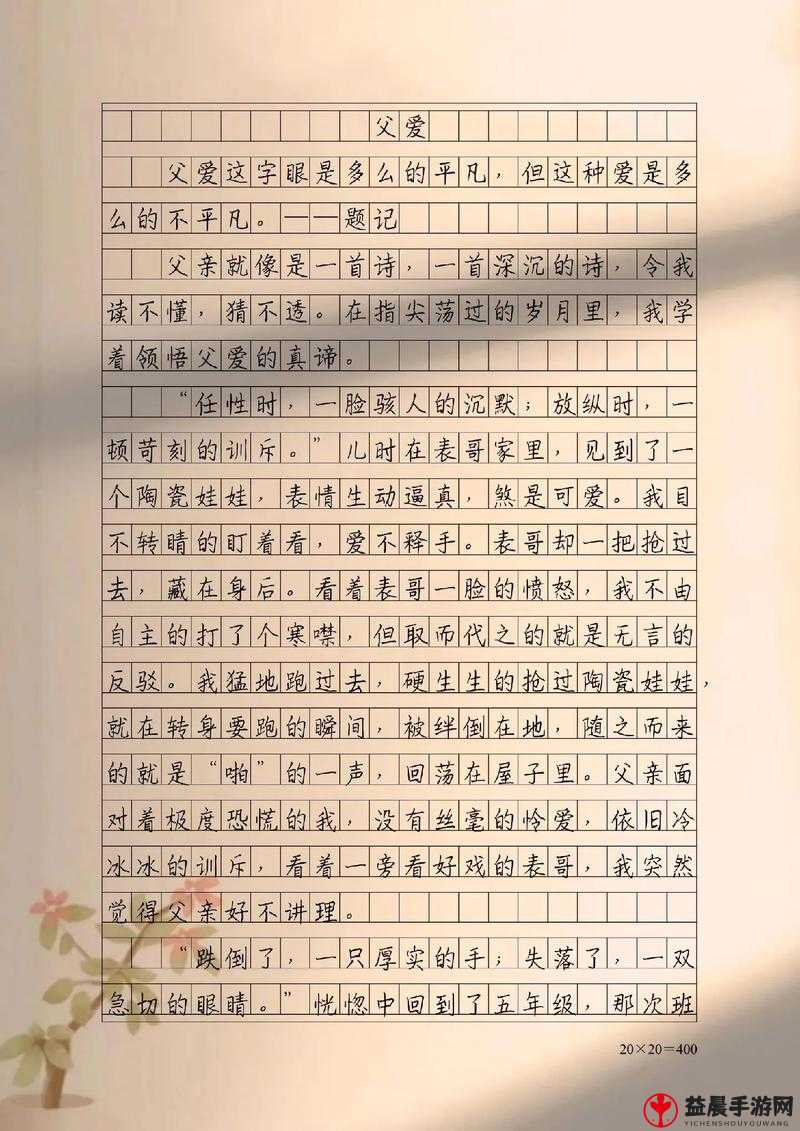 父爱
父爱这字眼是多么的平凡，但这种爱是多
么的不平凡。——题记
父亲就像是一首诗，一首深沉的诗，令我
读不懂，猜不透。在指尖荡过的岁月里，我学
着领悟父爱的真谛。
“任性时，一脸骇人的沉默；放纵时，一
顿苛刻的训斥。”儿时在表哥家里，见到了一
个陶瓷娃娃，表情生动逼真，煞是可爱。我目
不转睛的盯着看，爱不释手。表哥却一把抢过
去，藏在身后。看着表哥一脸的愤怒，我不由
自主的打了个寒噤，但取而代之的就是无言的
反驳。我猛地跑过去，硬生生的抢过陶瓷娃娃，
就在转身要跑的瞬间，被绊倒在地，随之而来
的就是“啪”的一声，回荡在屋子里。父亲面
对着极度恐慌的我，没有丝毫的怜爱，依旧冷
冰冰的训斥，看着一旁看好戏的表哥，我突然
觉得父亲好不讲理。
“跌倒了，一只厚实的手；失落了，一双
急切的眼睛。”恍惚中回到了五年级，那次班
20×20=400
益晨手游网
YICHENSHOUYOUWANG